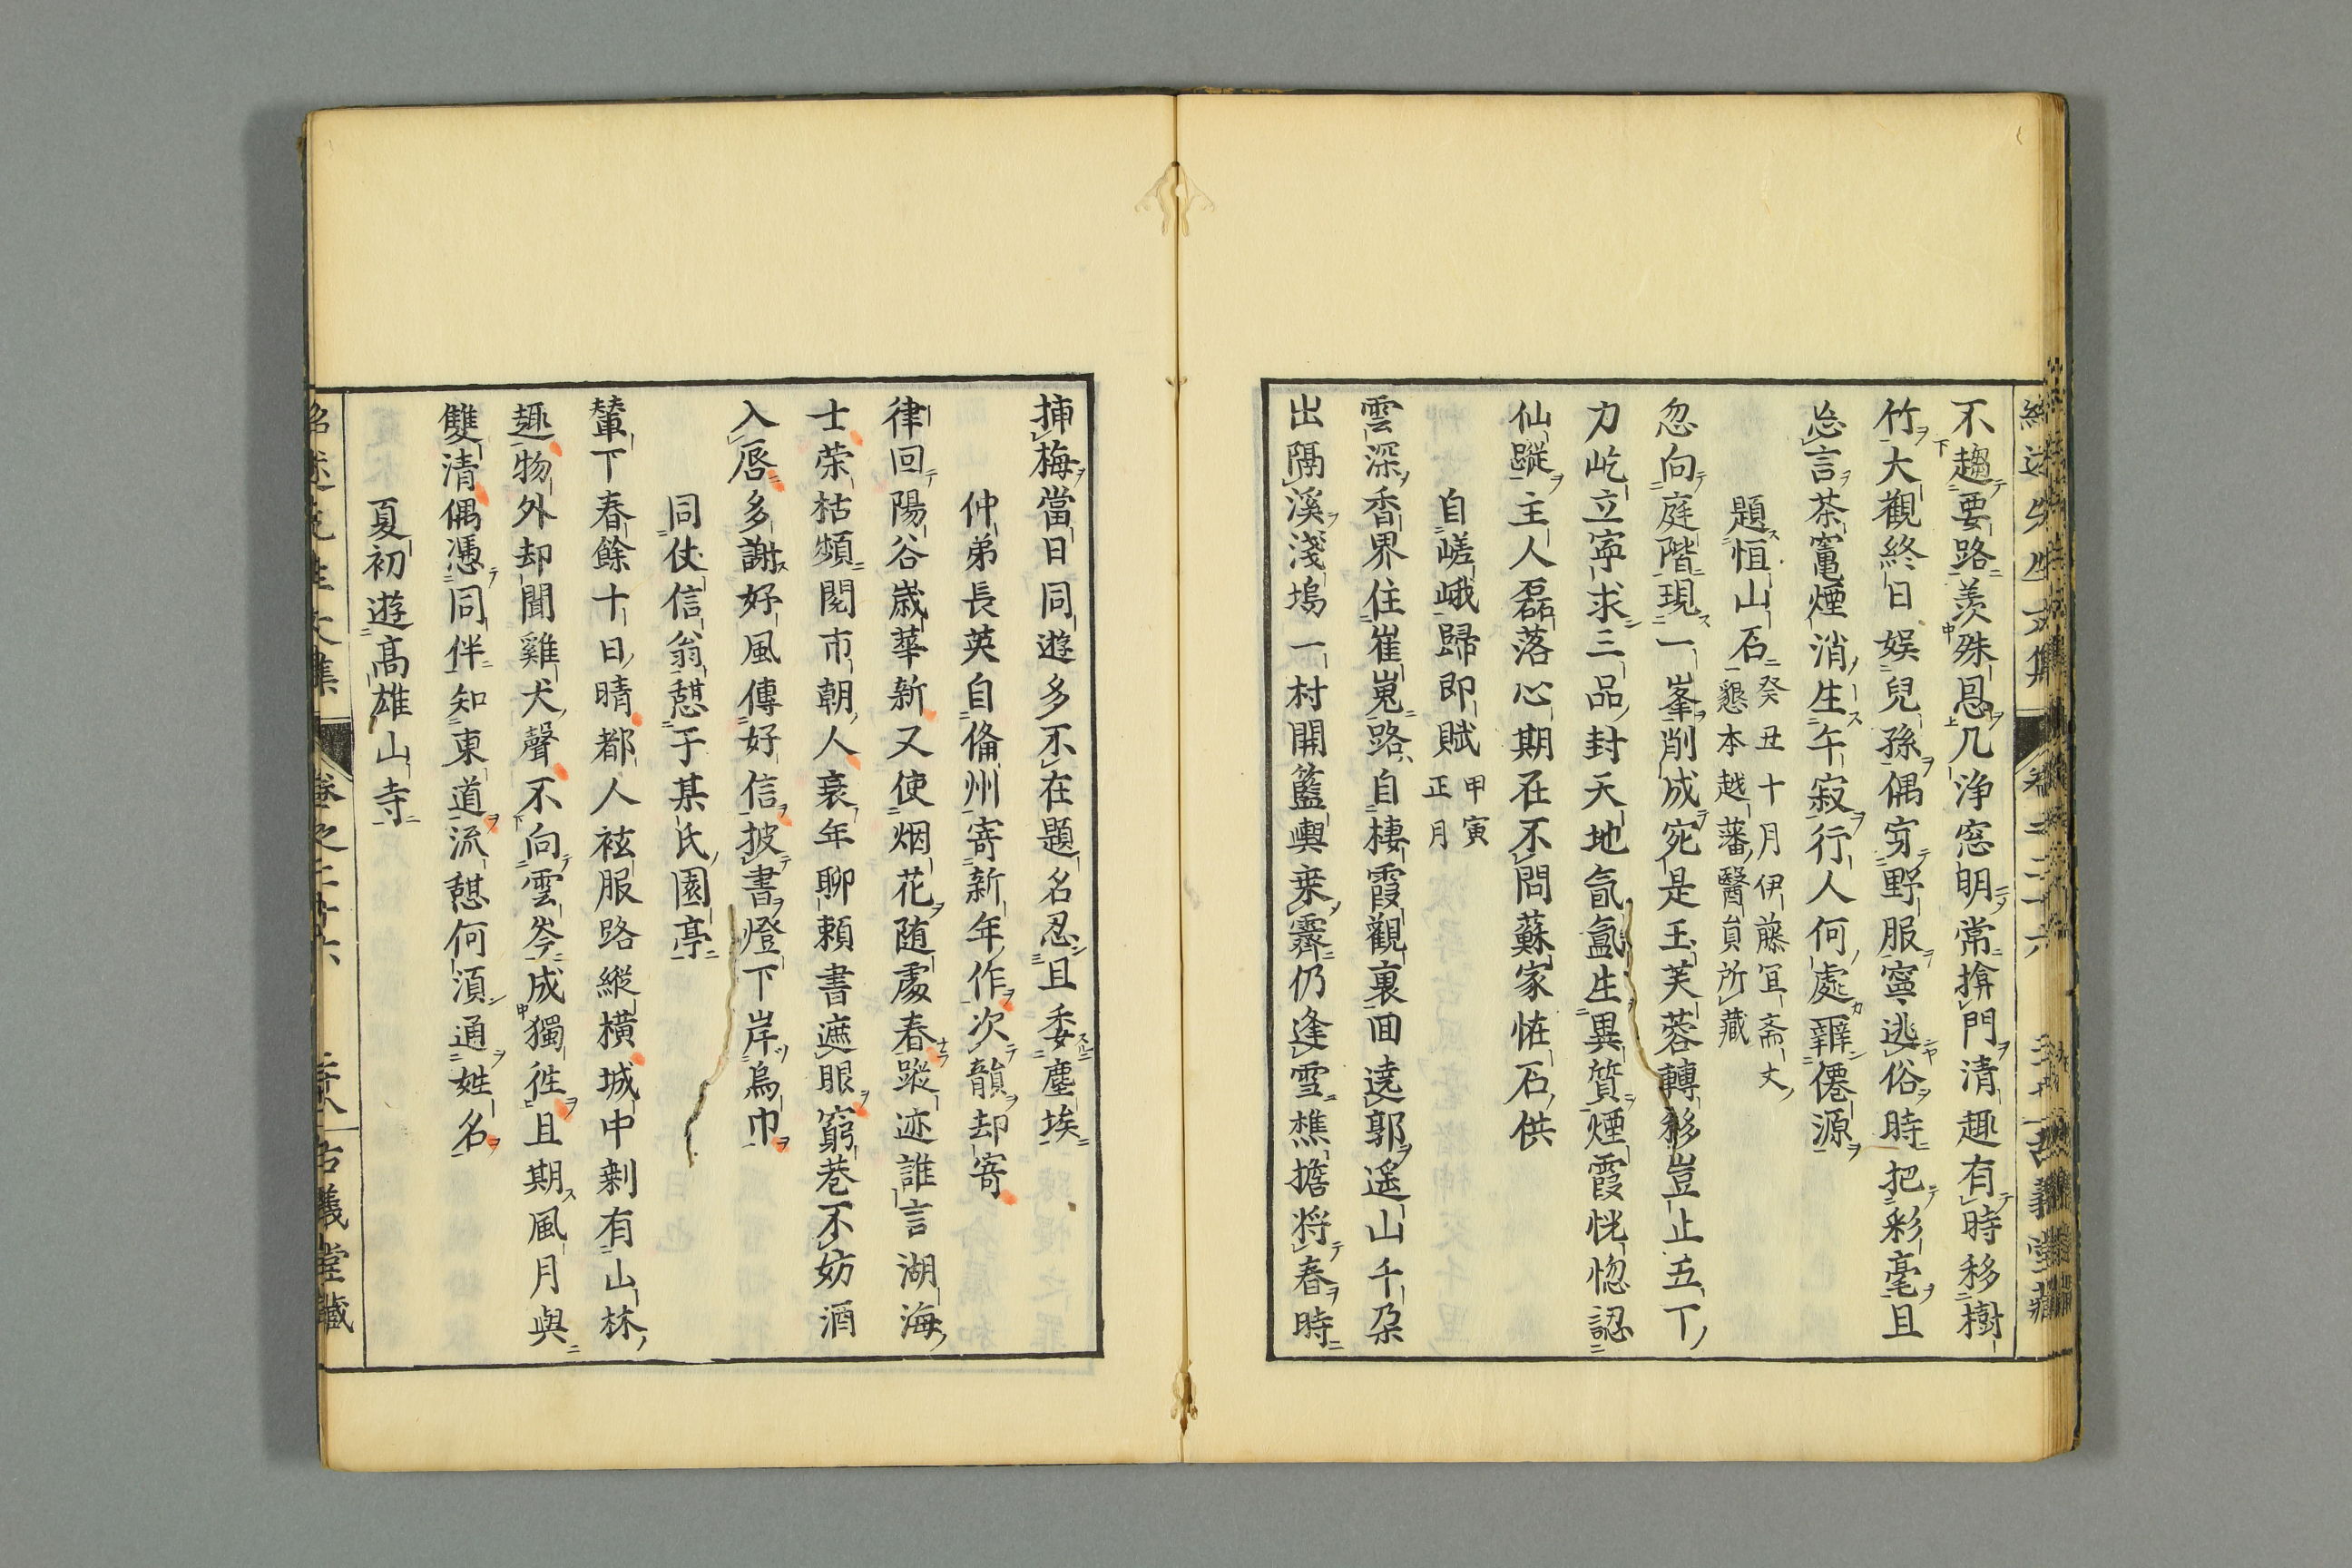 不趨要路羨殊恩几淨窓明常揜門清趣有時移樹
竹大觀終日娯兒孫偶穿野服寧逃俗時把彩毫且
忘言茶竃煙消生午寂行人何處羃僊源
題恒山石
癸丑十月伊藤冝斎丈
懇本越藩醫員所藏
忽向庭階現一峯削成宛是玉芙蓉轉移豈止五丁
力屹立寧求三品封天地氤氳生異質煙霞恍惚認
仙蹤主人磊落心期在不問蘇家恠石供
自嵯峨歸即賦
甲寅
正月
雲深香界住崔嵬路自棲霞觀裏回遶郭遥山千朶
出隔溪淺塢一村開籃輿乗霽仍逢雪樵擔将春時
挿梅當日同遊多不在題名忍且委塵埃
仲弟長英自備州寄新年作次韻却寄
律回陽谷歳華新又使烟花随處春蹤迹誰言湖海
士荣枯頻閲市朝人衰年聊頼書遮眼窮巷不妨酒
入唇多謝好風傳好信披書燈下岸烏巾
同仗信翁憩于某氏園亭
輦下春餘十日晴都人袨服路縦横城中剰有山林
趣物外却聞雞犬聲不向雲岑成獨往且期風月與
雙清偶憑同伴知東道流憩何湏通姓名
夏初遊髙雄山寺
卷之二十六
古義堂藏